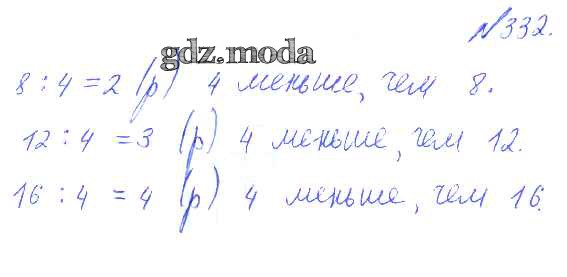 №332.
gdz.moda
8 : 4 = 2 (р) 4 меньше, чем 8.
12 : 4 = 3 (р) 4 меньше, чем 12.
16 : 4 = 4 (р) 4 меньше, чем 16.